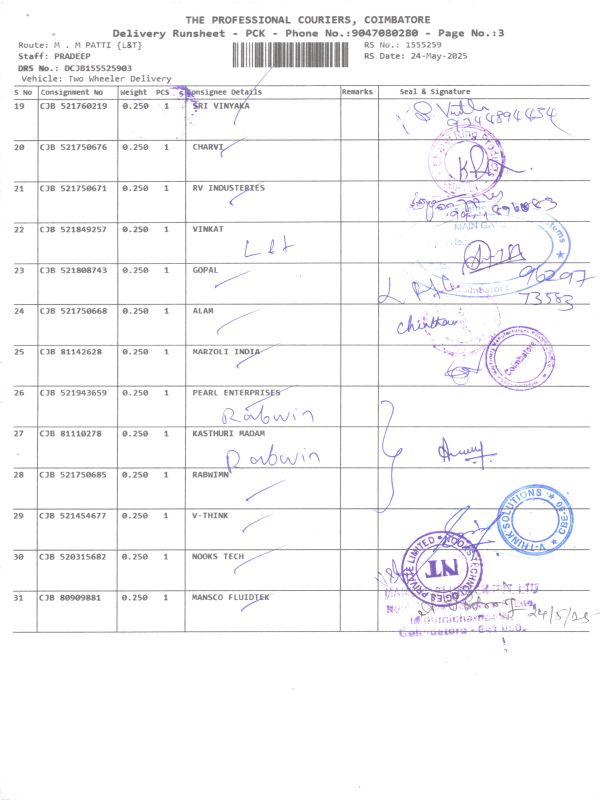 THE PROFESSIONAL COURIERS, COIMBATORE
Delivery Runsheet - PCK - Phone No.:9047080280 - Page No.:3
Route: M . M PATTI {L&T} RS No.: 1555259
Staff: PRADEEP RS Date: 24-May-2025
DRS No.: DCJB155525903
Vehicle: Two Wheeler Delivery
S No Consignment No Weight PCS Consignee Details Remarks Seal & Signature
19 CJB 521760219 0.250 1 SRI VINYAKA
9744894454
20 CJB 521750676 0.250 1 CHARVI
21 CJB 521750671 0.250 1 RV INDUSTERIES
22 CJB 521849257 0.250 1 VINKAT
MAIN GATE
L&t
23 CJB 521808743 0.250 1 GOPAL
96297
73583
24 CJB 521750668 0.250 1 ALAM
25 CJB 81142628 0.250 1 MARZOLI INDIA
Coimbatore
26 CJB 521943659 0.250 1 PEARL ENTERPRISES
Rabwin
27 CJB 81110278 0.250 1 KASTHURI MADAM
Rabwin
28 CJB 521750685 0.250 1 RABWIMN
29 CJB 521454677 0.250 1 V-THINK
V-THINK SOLUTIONS
30 CJB 520315682 0.250 1 NOOKS TECH
NOOKS TECHNOLOGIES PRIVATE LIMITED
NT
31 CJB 80909881 0.250 1 MANSCO FLUIDTEK
24/5/25